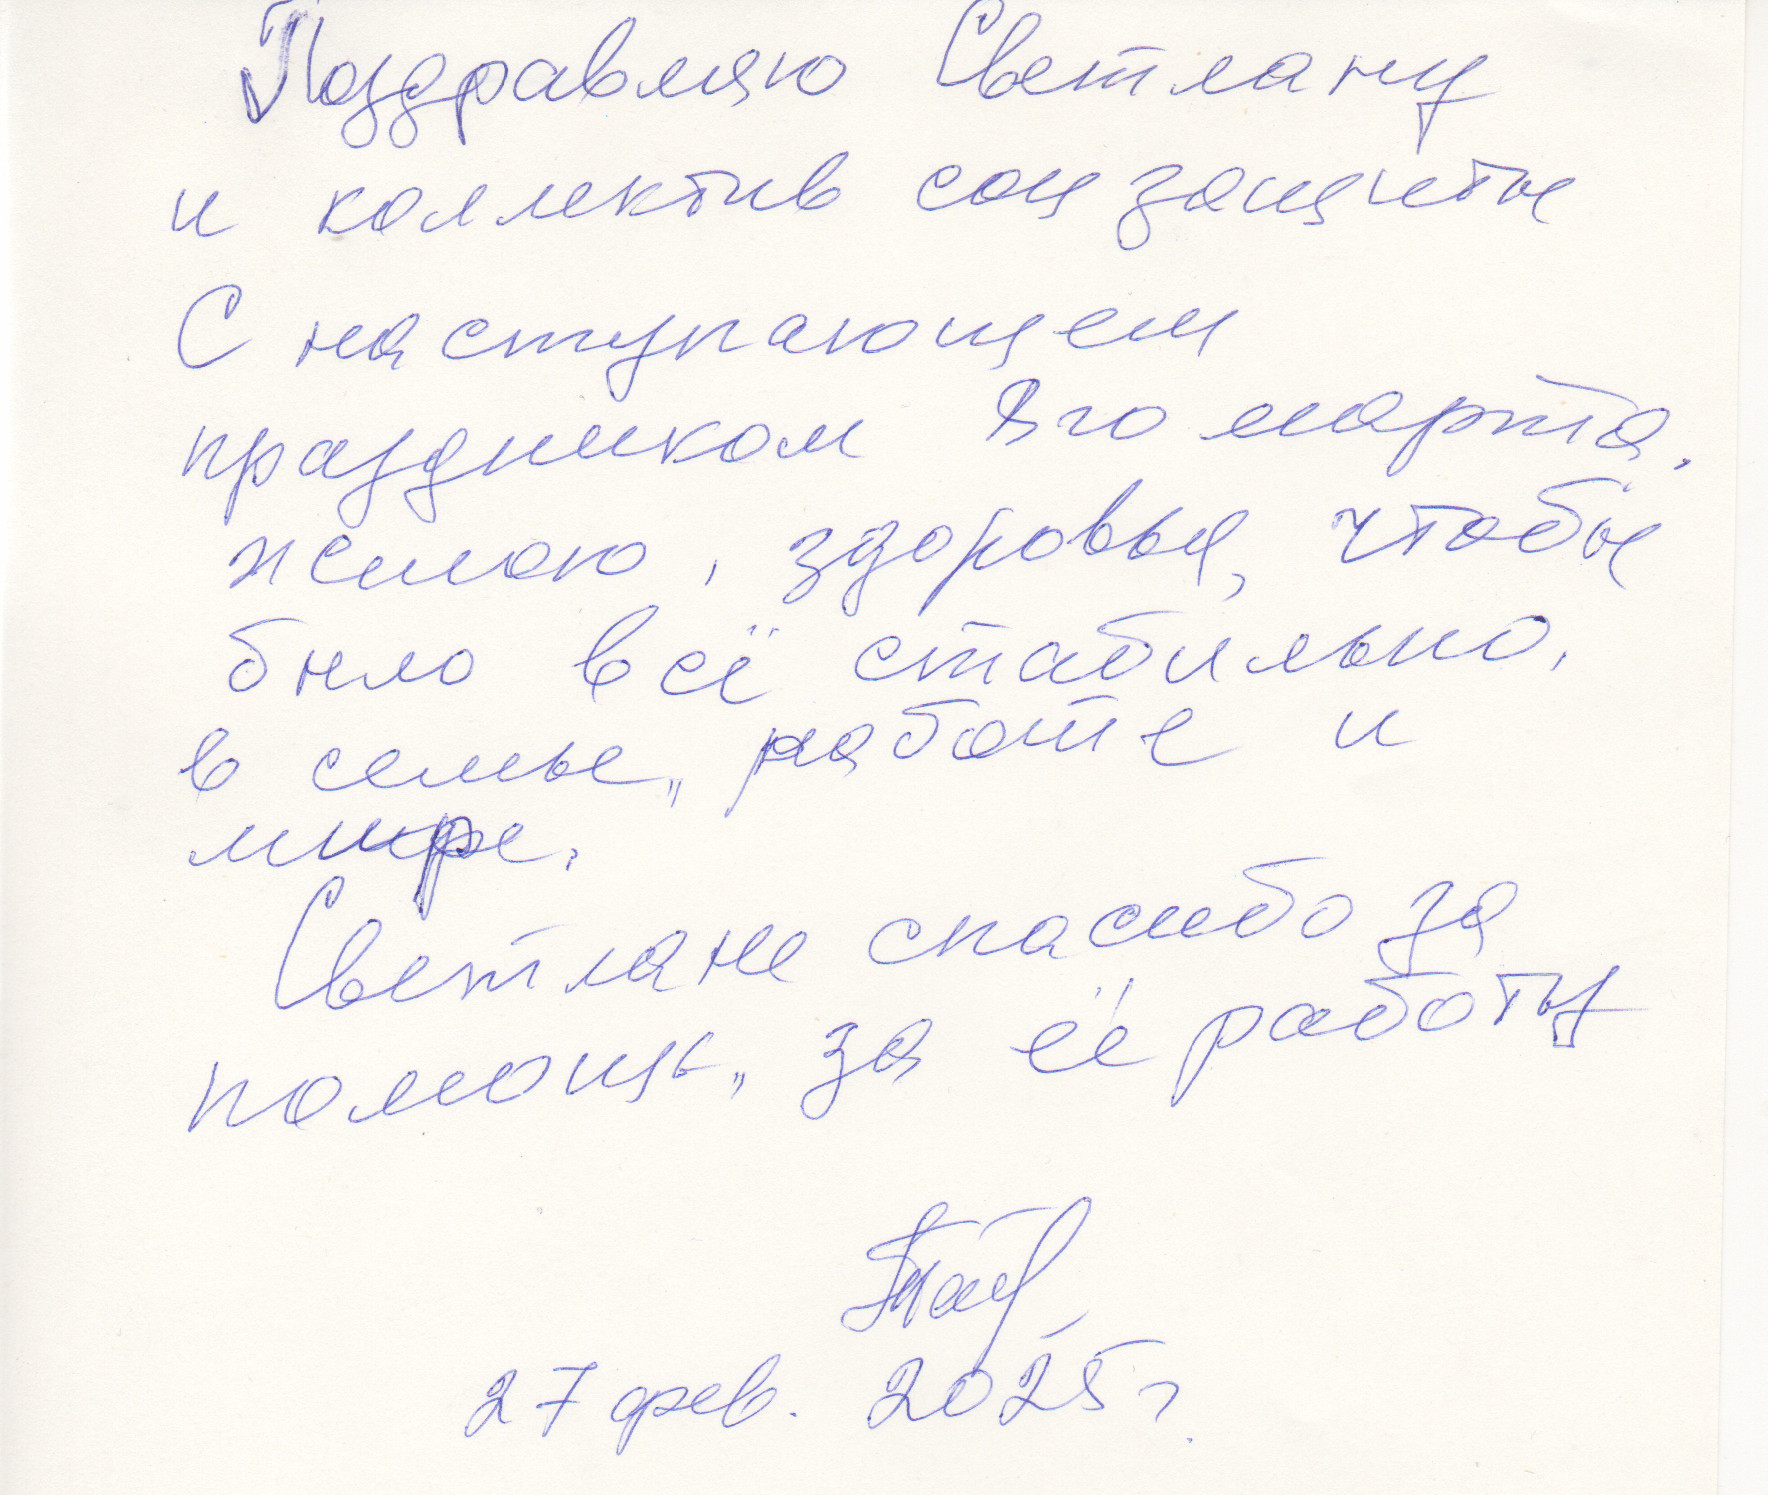 Поздравляю Светлану
и коллектив соц защиты
С наступающем
праздником 8го марта.
желаю, здоровья, чтобы
было всё стабильно,
в семье,, работе и
мире.
Светлане спасибо за
помощь,, за её работу
27 фев. 2025 г.